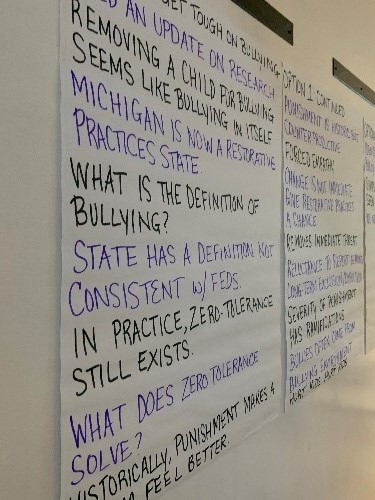 GET TOUGH ON BULLYING
AN UPDATE ON RESEARCH
REMOVING A CHILD FOR BULLYING
SEEMS LIKE BULLYING IN ITSELF
MICHIGAN IS NOW A RESTORATIVE
PRACTICES STATE.
WHAT IS THE DEFINITION OF
BULLYING?
STATE HAS A DEFINITION NOT
CONSISTENT W/ FEDS.
IN PRACTICE, ZERO-TOLERANCE
STILL EXISTS.
WHAT DOES ZERO TOLERANCE
SOLVE?
HISTORICALLY, PUNISHMENT MAKES
FEEL BETTER.
OPTION 1 CONTINUED
PUNISHMENT IS
COUNTERPRODUCTIVE
FORCED EMPATHY
CHANGE IS NOT IMMEDIATE
GIVE RESTORATIVE PRACTICES
A CHANCE
REMOVES IMMEDIATE THREAT
RELUCTANCE TO REPORT
LONG-TERM
SEVERITY OF PUNISHMENT
HAS RAMIFICATIONS
BULLIES OFTEN COME FROM
BULLYING ENVIRONMENT
HURT KIDS HURT KIDS